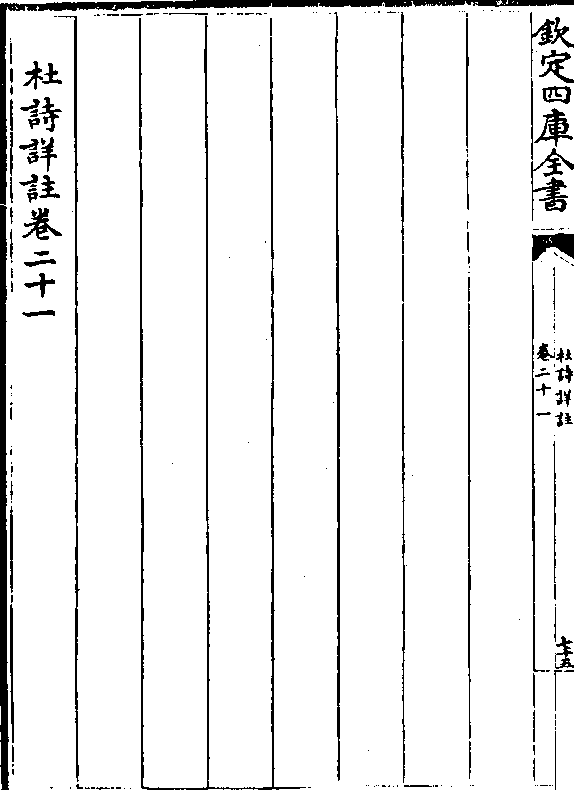 欽定四庫全書
杜詩詳註
卷二十一
七十五
杜詩詳註卷二十一